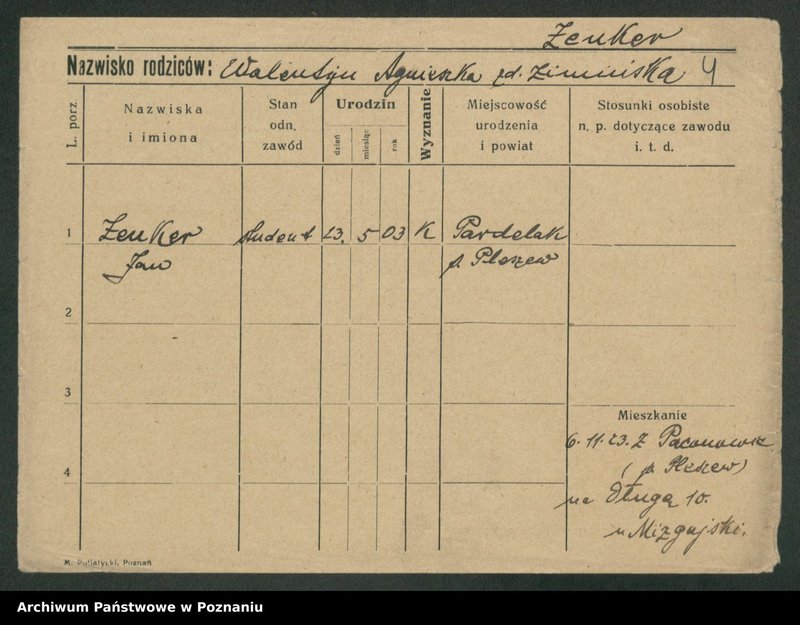 Zenker
Nazwisko rodziców: Walentyn Agnieszka zd. Zimińska 4
L. porz
Nazwiska
i imiona
Stan
odn.
zawód
Urodzin
dzień
miesiąc
rok
Wyznanie
Miejscowość
urodzenia
i powiat
Stosunki osobiste
n. p. dotyczące zawodu
i. t. d.
1 Zenker student 23. 5 03 K Pardelak
Jan p. Pleszew
2
3
Mieszkanie
6.11.23. z
4
(p. Pleszew)
na Długą 10.
u Mizgajski.
M. Putiatycki, Poznań
Archiwum Państwowe w Poznaniu